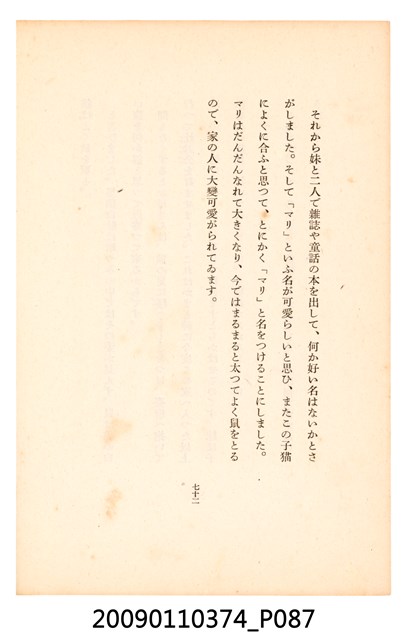 それから妹と二人で雜誌や童話の本を出して、何か好い名はないかとさ
がしました。そして「マリ」といふ名が可愛らしいと思ひ、またこの子猫
によくに合ふと思つて、とにかく「マリ」と名をつけることにしました。
マリはだんだんなれて大きくなり、今ではまるまると太つてよく鼠をとる
ので、家の人に大變可愛がられてゐます。
七十二
20090110374_P087